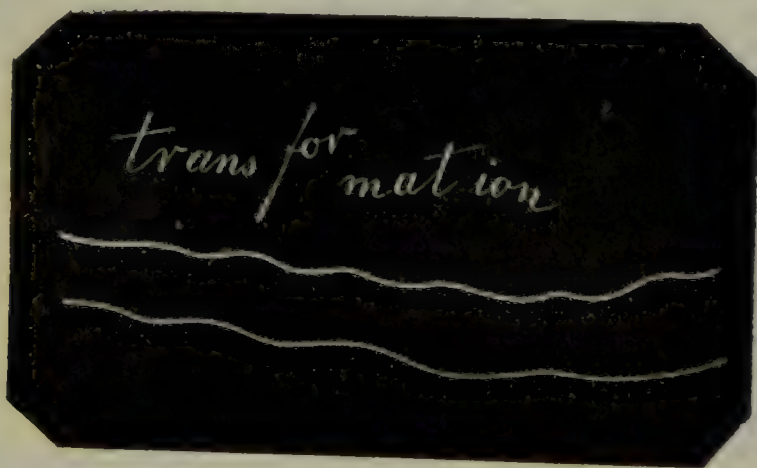 trans for mat ion